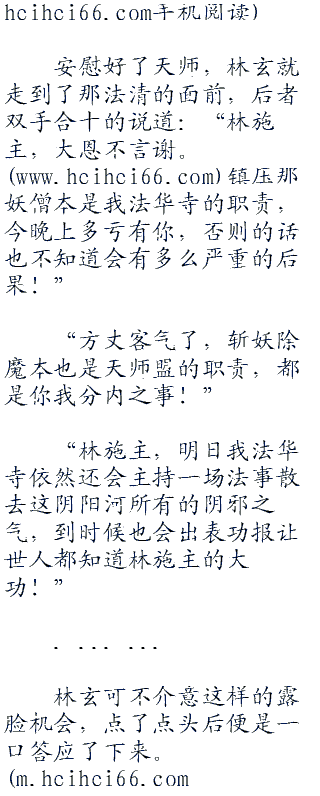 hcihci66.com手机阅读)
安慰好了天师，林玄就
走到了那法清的面前，后者
双手合十的说道：“林施
主，大恩不言谢。
(www.hcihci66.com)镇压那
妖僧本是我法华寺的职责，
今晚上多亏有你，否则的话
也不知道会有多么严重的后
果！”
“方丈客气了，斩妖除
魔本也是天师盟的职责，都
是你我分内之事！”
“林施主，明日我法华
寺依然还会主持一场法事散
去这阴阳河所有的阴邪之
气，到时候也会出表功报让
世人都知道林施主的大
功！”
. ... ...
林玄可不介意这样的露
脸机会，点了点头后便是一
口答应了下来。
(m.hcihci66.com